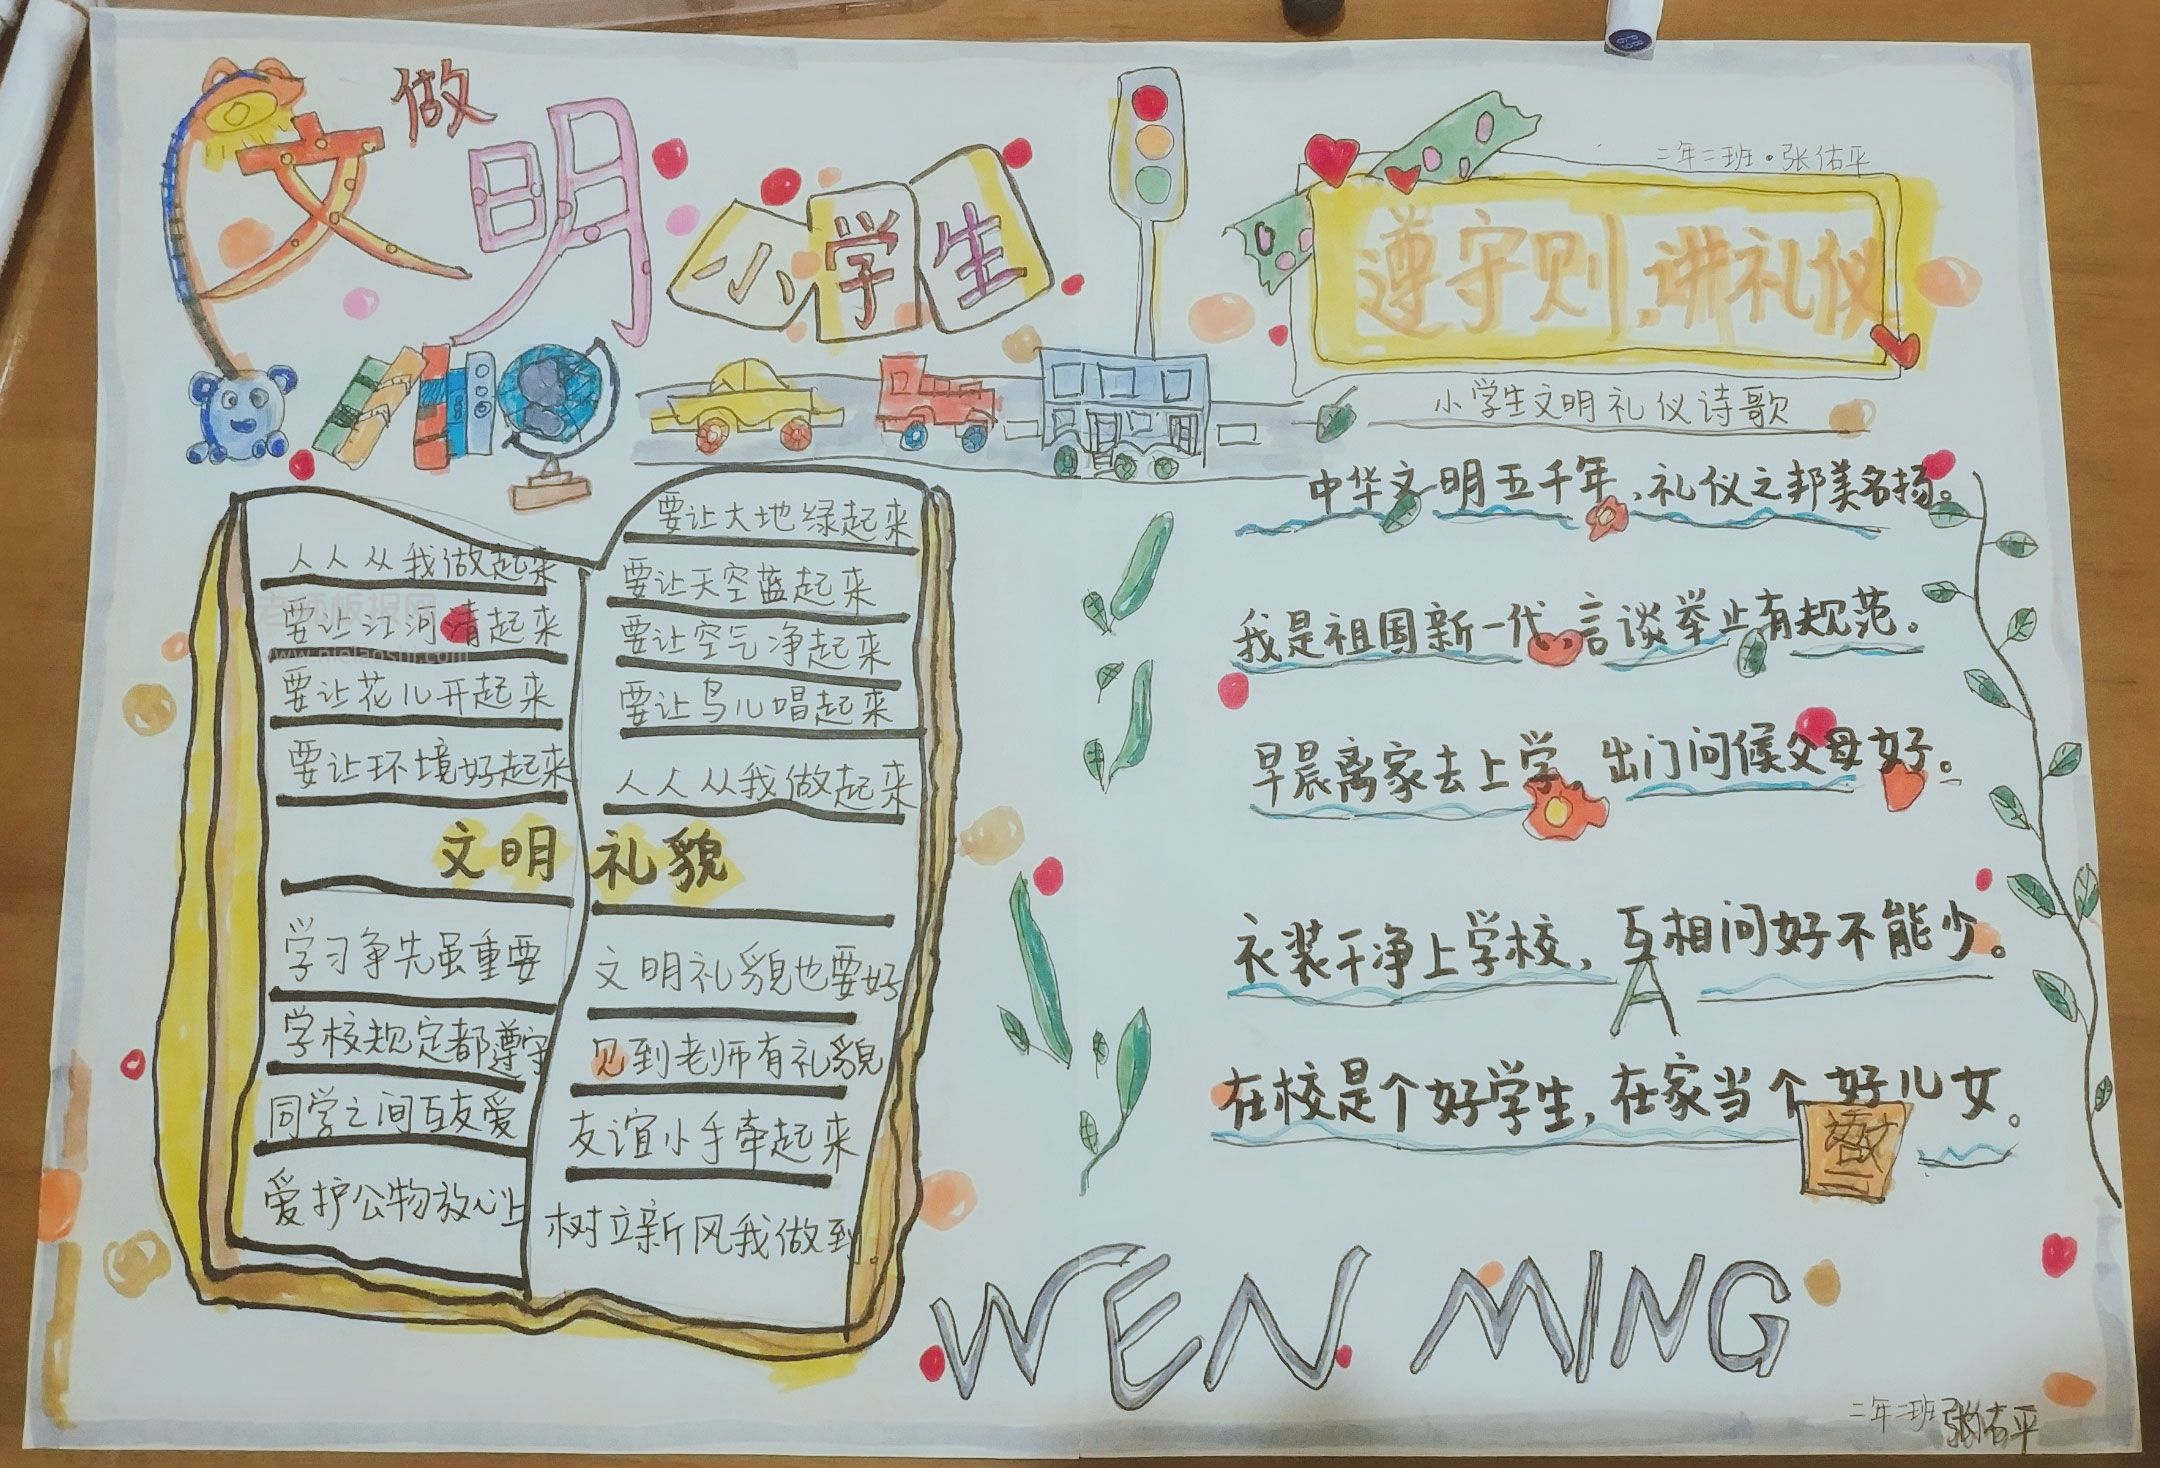 做
文明
小学生
二年二班·张佑平
遵守则,讲礼仪
小学生文明礼仪诗歌
中华文明五千年,礼仪之邦美名扬。
我是祖国新一代,言谈举止有规范。
早晨离家去上学,出门问候父母好。
衣装干净上学校,互相问好不能少。
在校是个好学生,在家当个好儿女。
人人从我做起来
要让江河清起来
要让花儿开起来
要让环境好起来
要让大地绿起来
要让天空蓝起来
要让空气净起来
要让鸟儿唱起来
人人从我做起来
文明礼貌
学习争先虽重要
学校规定都遵守
同学之间互友爱
爱护公物放心上
文明礼貌也要好
见到老师有礼貌
友谊小手牵起来
树立新风我做到
WEN MING
二年二班张佑平
老师板报网